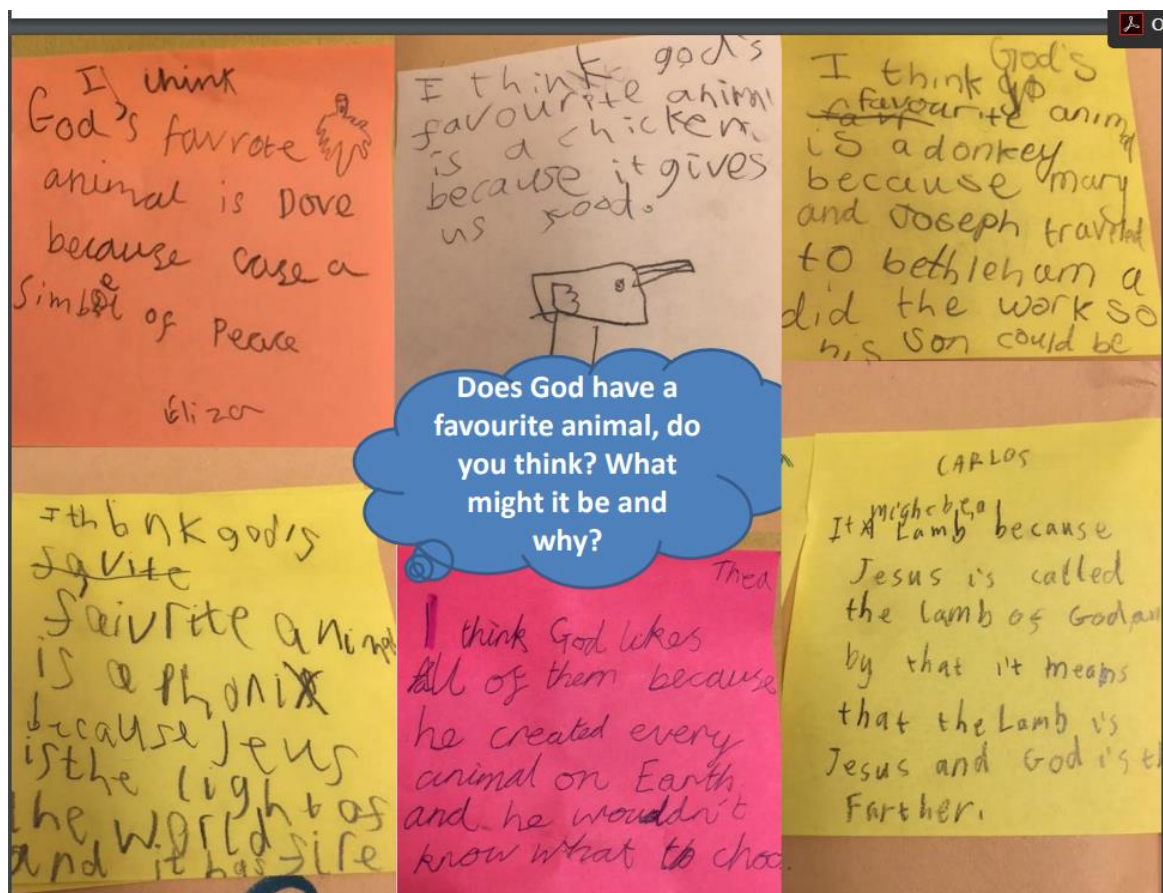 I think
God's favrote
animal is Dove
because case a
Simbel of Peace
Eliza
I think god's
favourite animl
is a chicken.
because it gives
us food.
I think God's
favourite anim
is a donkey
because mary
and Joseph traveled
to bethleham a
did the work so
his son could be
Does God have a
favourite animal, do
you think? What
might it be and
why?
I thbnk god's
favite
faivrite animal
is a phonix
because Jeus
is the light of
the world
and it has fire
Thea
I think God likes
All of them because
he created every
animal on Earth
and he wouldn't
know what to choo
CARLOS
It might be a Lamb because
Jesus is called
the lamb of God an
by that it means
that the Lamb is
Jesus and God is th
Farther.